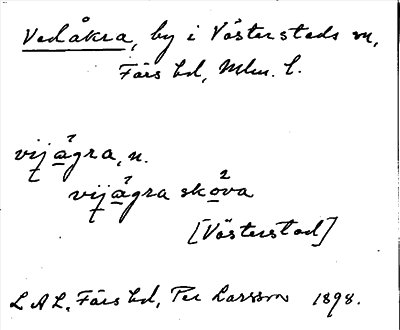 Vedåkra, by i Västerstads sn,
Färs hd, Mlm. l.
vijågra, n.
vijågra skova
[Västerstad]
LAL, Färs hd, Per Larsson 1898.